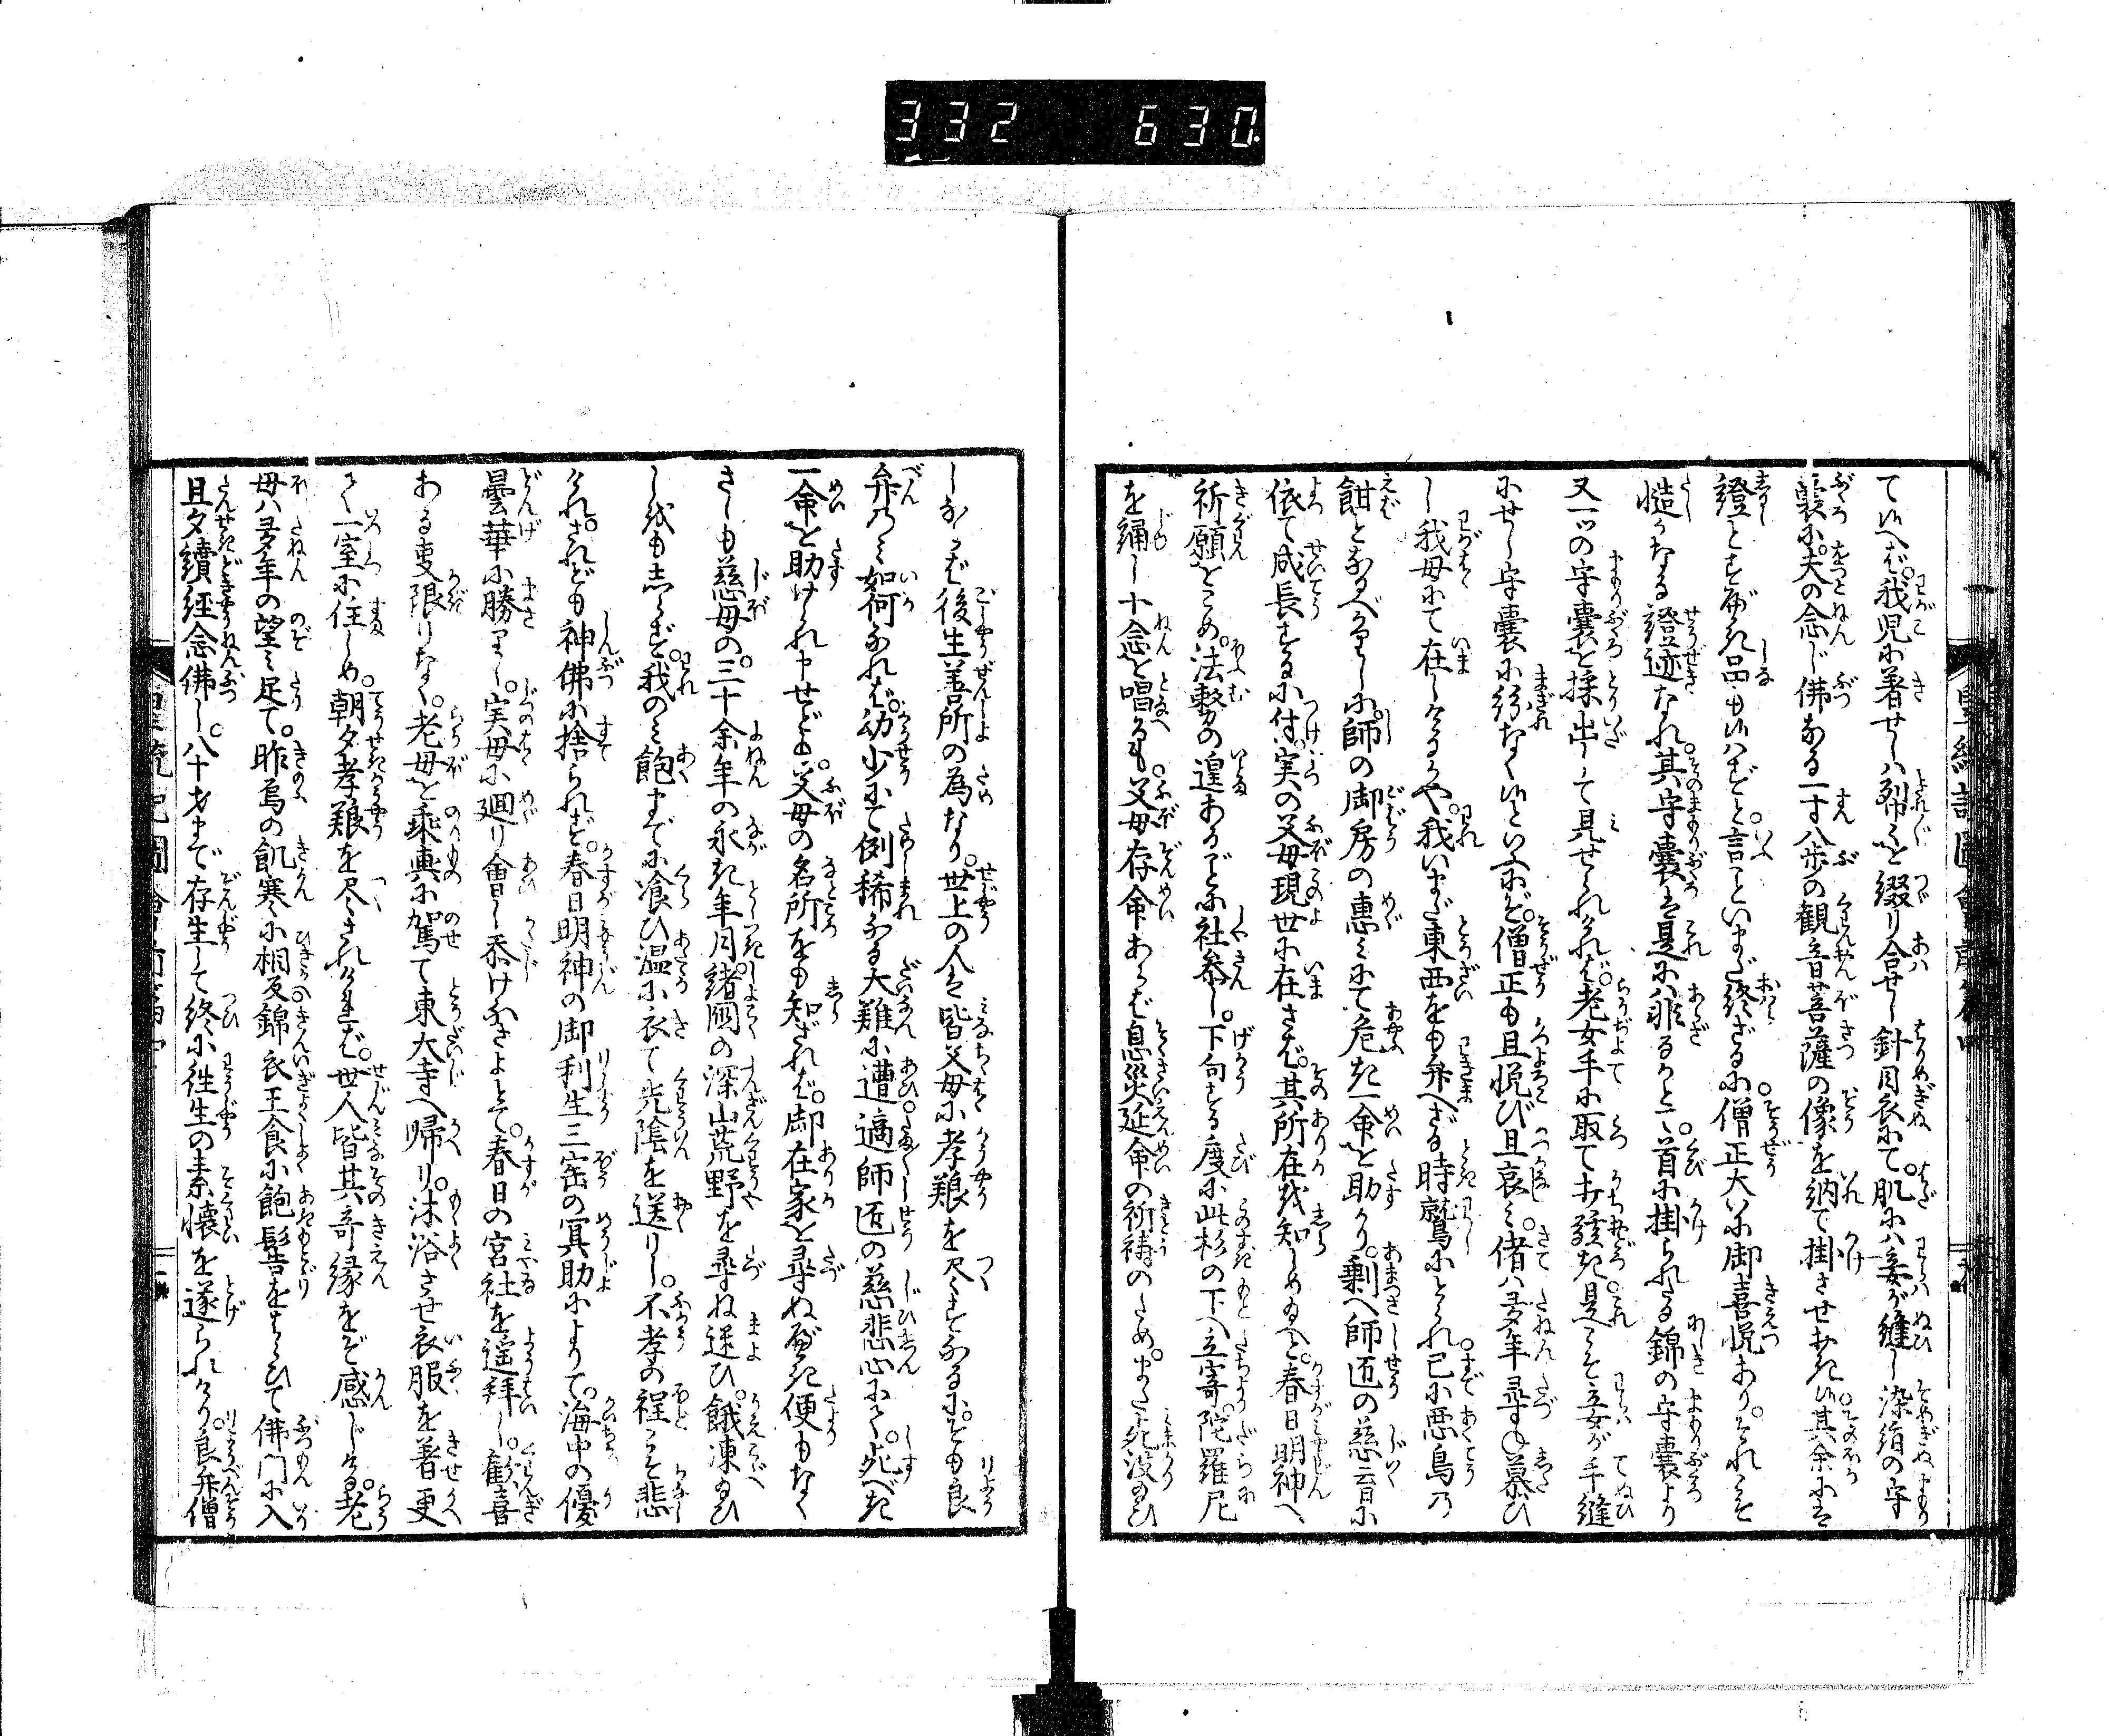 332 630
て候へば。我児に着せしハ絹ぐを綴り合せし針目衣にて。肌にハ妾が縫し染絹の守
嚢に。夫の念じ佛なる一寸八歩の観音菩薩の像を納て掛させおき候。其余にハ
證とすべき品も候ハずと。言こといまだ終ざるに。僧正大いに御喜悦あり。それこそ
慥かなる證迹なれ。其守嚢ハ是にハ非るかと。首に掛られたる錦の守嚢より
又一ツの守嚢を採出して見せられければ。老女手に取て打驚き。是こそ妾が手縫
にせし守嚢に紛なく候といふにぞ。僧正も且悦び且哀ミ。偖ハ多年尋ね慕ひ
し我母にて在しけるかや。我いまだ東西をも弁へざる時鷲にとられ。已に悪鳥の
餌となるべかりしに。師の御房の恵ミにて危き一命を助かり。剰へ師匠の慈育に
依て成長するに付。実の父母現世に在さば。其所在を知しめ給へと。春日明神へ
祈願をこめ。法務の遑あるごとに社参し。下向する度に此杉の下へ立寄。陀羅尼
を繍し十念を唱るも。父母存命あらバ息災延命の祈祷のため。また死没給ひ
しならバ後生善所の為なり。世上の人ハ皆父母に孝養を尽すなるに。そも良
弁のミ如何なれば。幼少にて例稀なる大難に遭。適師匠の慈悲心にて。死べき
一命を助けられ申せども。父母の名所をも知ざれば。御在家を尋ぬべき便もなく
さしも慈母の。三十余年の永き年月。諸国の深山荒野を尋ね迷ひ。餓凍給ひ
しをも志らず。我のミ飽までに喰ひ温に衣て光陰を送りし。不孝の程こそ悲
けれ。されども神佛に捨られず。春日明神の御利生三宝の冥助によりて。海中の優
曇華に勝りし。実母に廻り會し忝けなさよとて。春日の宮社を遥拝し。歓喜
ある事限りなく。老母を乗輿に駕て東大寺へ帰り。沐浴させ衣服を着更
させ一室に住しめ。朝夕孝養を尽されければ。世人皆其奇縁をぞ感じける。老
母ハ多年の望ミ足て。昨烏の飢寒に相反錦衣玉食に飽髻をはらひて佛門に入
旦夕續経念佛し。八十才まで存生して終に往生の素懐を遂られけり。良弁僧